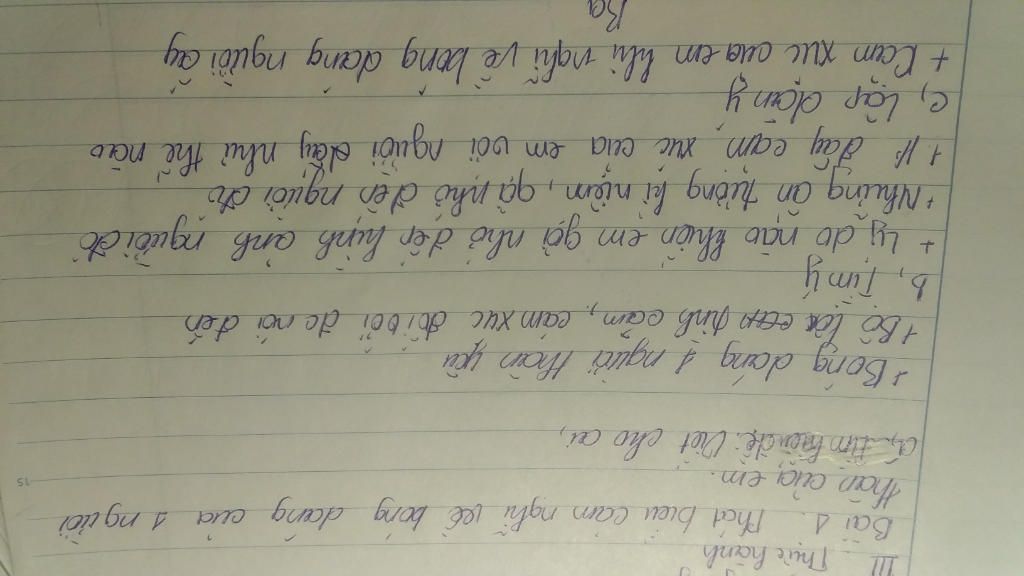 III Thực hành
Bài 1. Phát biểu cảm nghĩ về bóng dáng của 1 người
thân của em.
a, tìm hiểu đề. Viết cho ai,
+ Bóng dáng 1 người thân yêu
+ Bộ lộ tình cảm, cảm xúc đối với đc nói đến
b, Tìm ý
+ Lý do nào khiến em gợi nhớ đến hình ảnh người đó
+ Những ấn tượng kỉ niệm, gợi nhớ đến người đó
+ đấy cảm xúc của em với người đấy như thế nào
c, Lập dàn ý
+ Cảm xúc của em khi nghĩ về bóng dáng người ấy
Ba
15